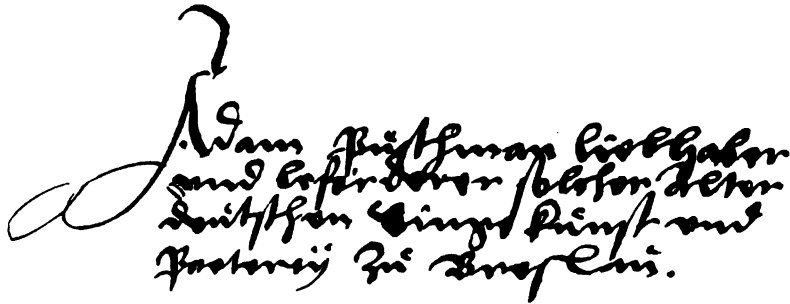 Adam Püschman liebhaber
und beförderer solcher Alten
deütschen Singe künst und
Poeterey zü Breslaü.